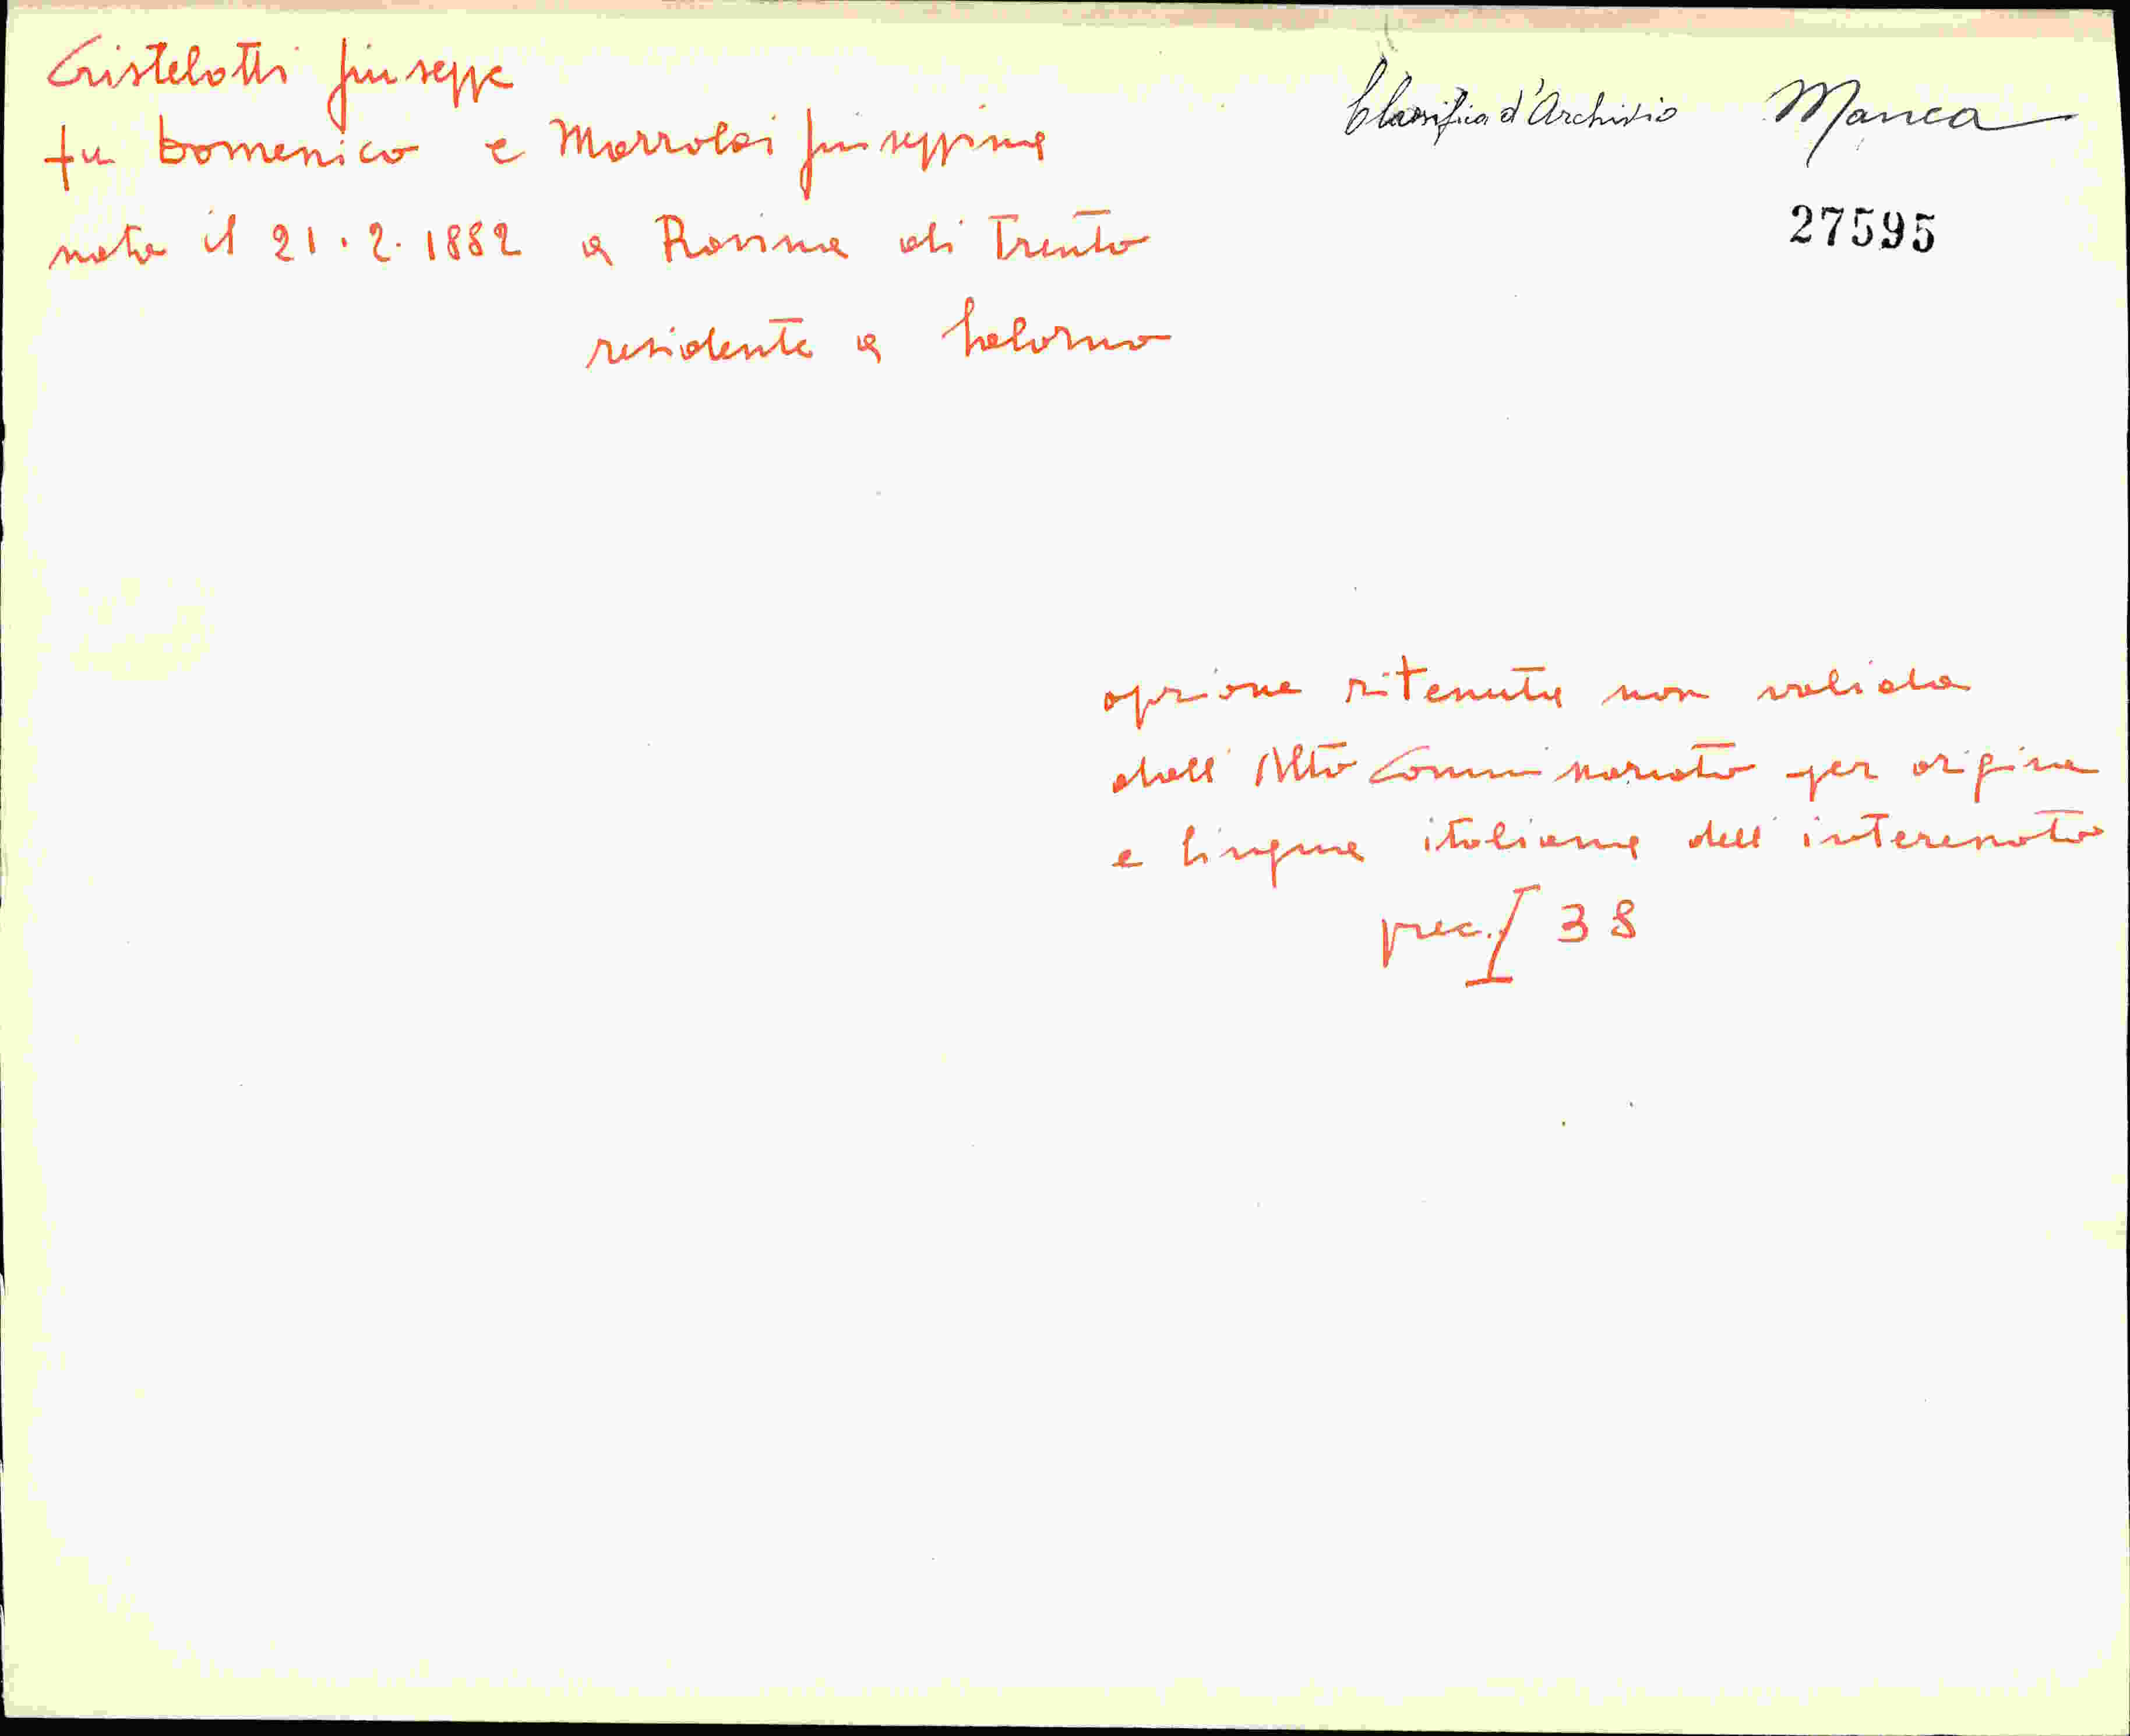 Cristelotti Giuseppe
fu Domenico e Giuseppina
nato il 21.2.1882 a Ravina di Trento
residente a Salorno
Classifica d'Archivio Manca
27595
opzione ritenuta non valida
dall'Alto Commissariato per origine
e lingua italiana dell'interessato
prec. I 38